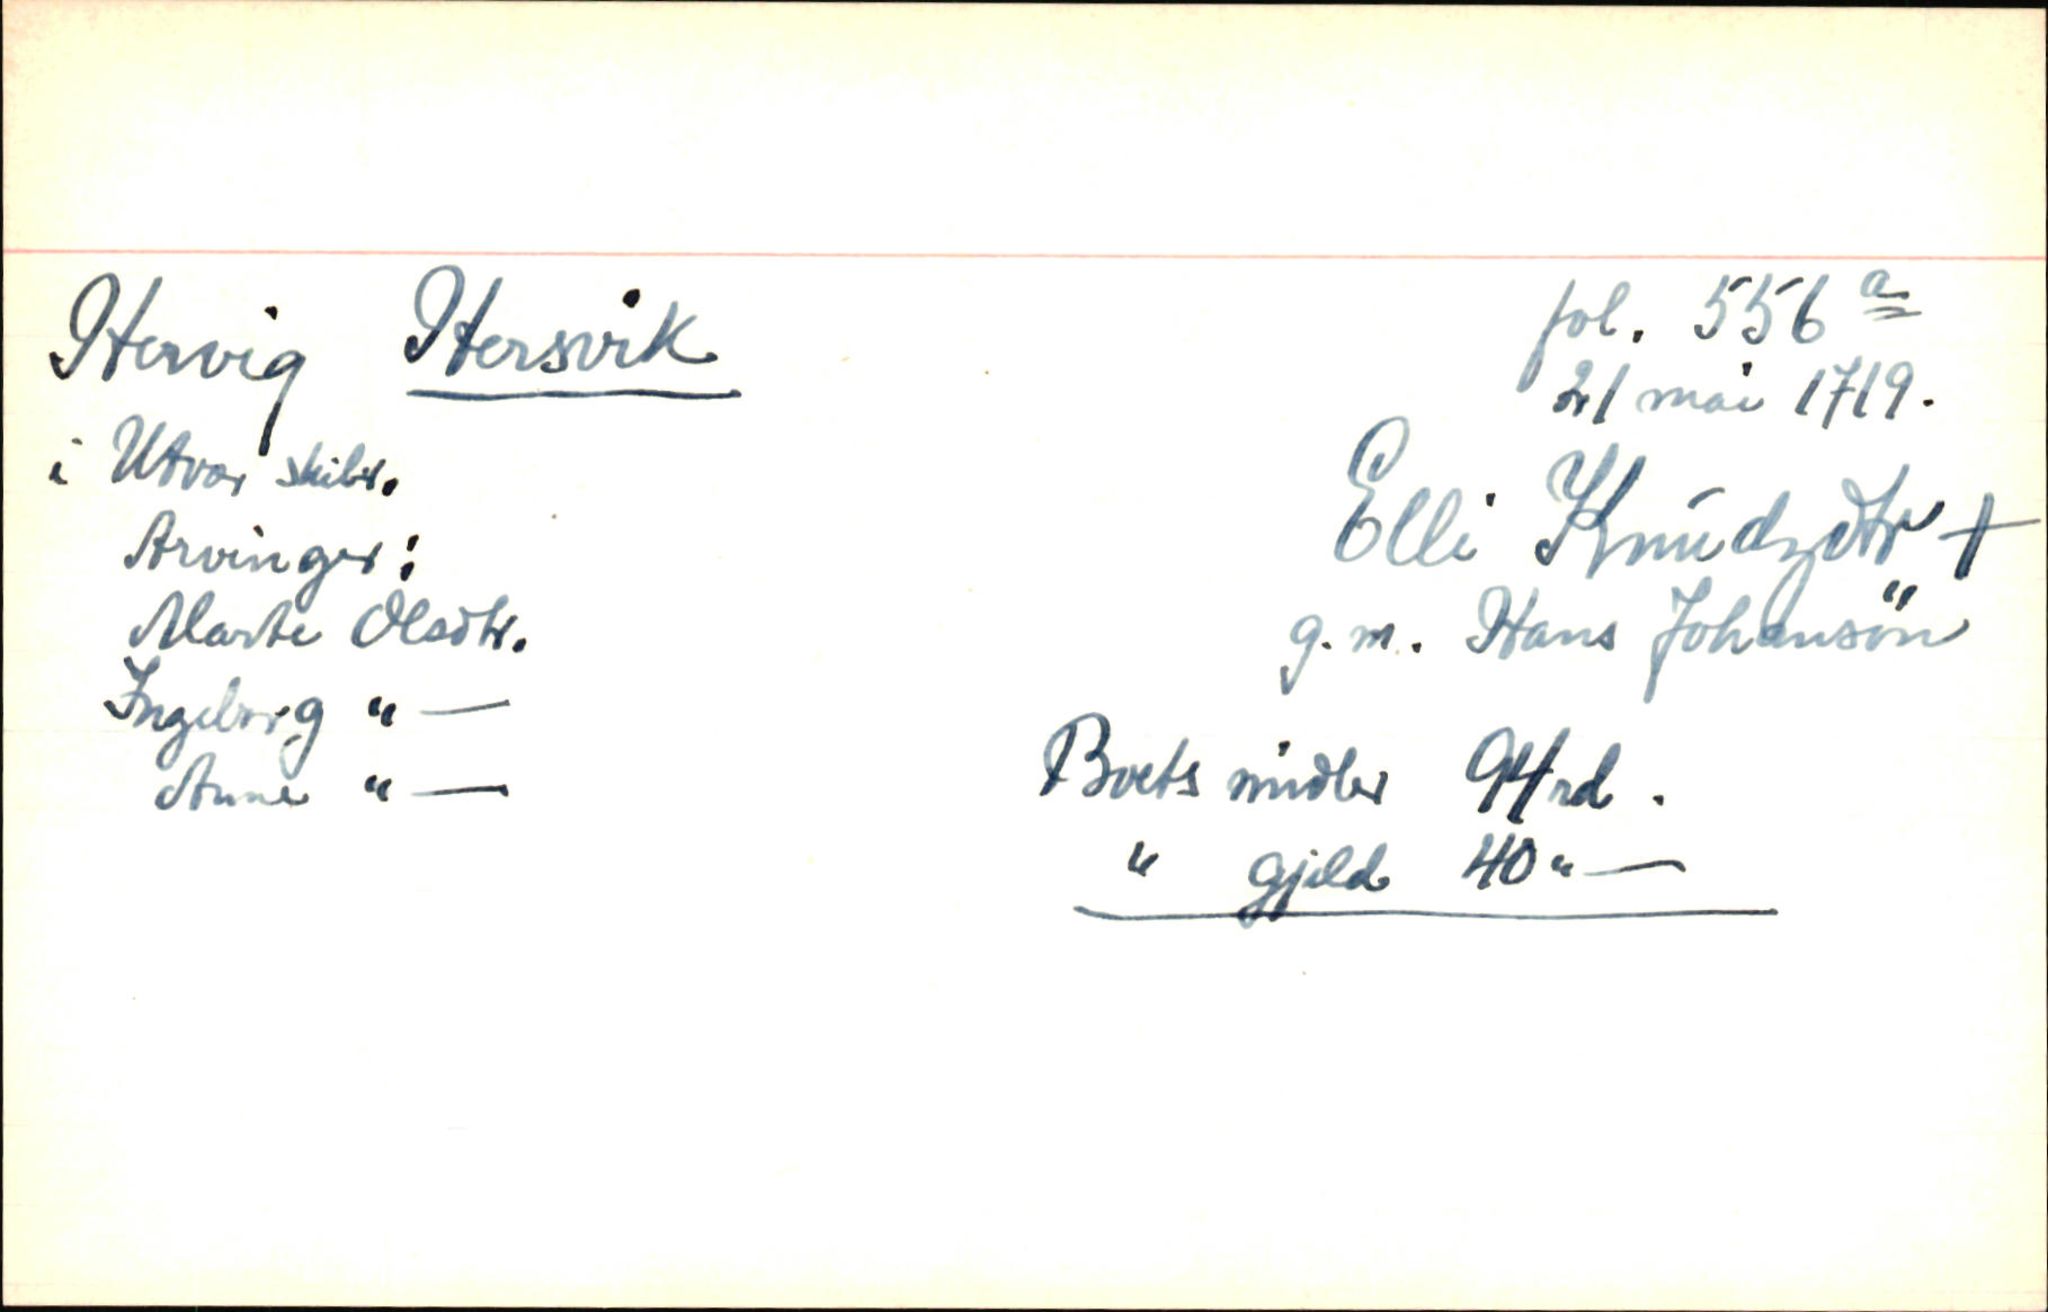 Hervig Hersvik
i Utvær skibr.
Arvinger:
Marte Olsdtr.
Ingeborg " —
Anne " —
fol. 556 a
21 mai 1719.
Elli Knudzdtr +
g. m. Hans Johansön
Boets midler 94 rd.
" gjeld 40 " —